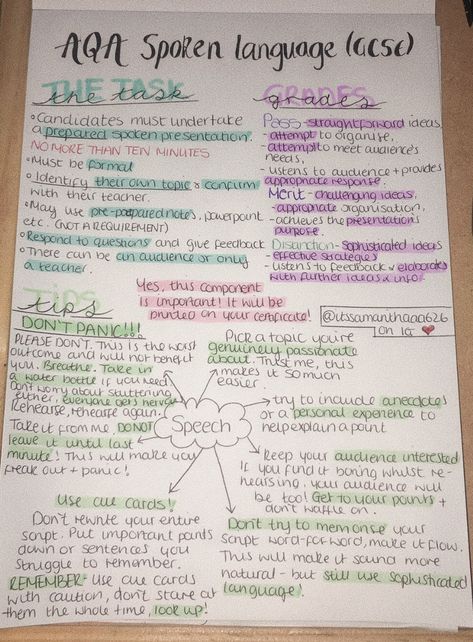 AQA Spoken language (GCSE)
THE TASK
the task
• Candidates must undertake
a prepared spoken presentation.
NO MORE THAN TEN MINUTES
• Must be formal
• Identify their own topic & confirm
with their teacher.
• May use pre-prepared notes, powerpoint
etc. (NOT A REQUIREMENT)
• Respond to questions and give feedback
• There can be an audience or only
a teacher.
GRADES
grades
Pass - straightforward ideas
- attempt to organise,
- attempt to meet audience's
needs,
- listens to audience + provides
appropriate response.
Merit - challenging ideas.
- appropriate organisation,
- achieves the presentation's
purpose.
Distinction - Sophisticated ideas
- effective strategies
- listens to feedback & elaborates
with further ideas & info.
Yes, this component
is important! It will be
printed on your certificate!
@itssamanthaaa626
on IG ❤
TIPS
tips
DON'T PANIC!!!
PLEASE DON'T. This is the worst
outcome and will not benefit
you. Breathe. Take in
a water bottle if you need.
Don't worry about stuttering
either, everyone gets nervous
Rehearse, rehearse again.
Take it from me, DO NOT
leave it until last
minute! This will make you
freak out + panic!
Speech
Pick a topic you're
genuinely passionate
about. Trust me, this
makes it so much
easier.
try to include anecdotes
or a personal experience to
help explain a point
Keep your audience interested
If you find it boring whilst re-
hearsing, your audience will
be too! Get to your points +
don't waffle on.
Use cue cards!
Don't rewrite your entire
script. Put important points
down or sentences you
struggle to remember.
REMEMBER: Use cue cards
with caution, don't stare at
them the whole time, look up!
Don't try to memorise your
script word-for-word, make it flow.
This will make it sound more
natural - but still use sophisticated
language!